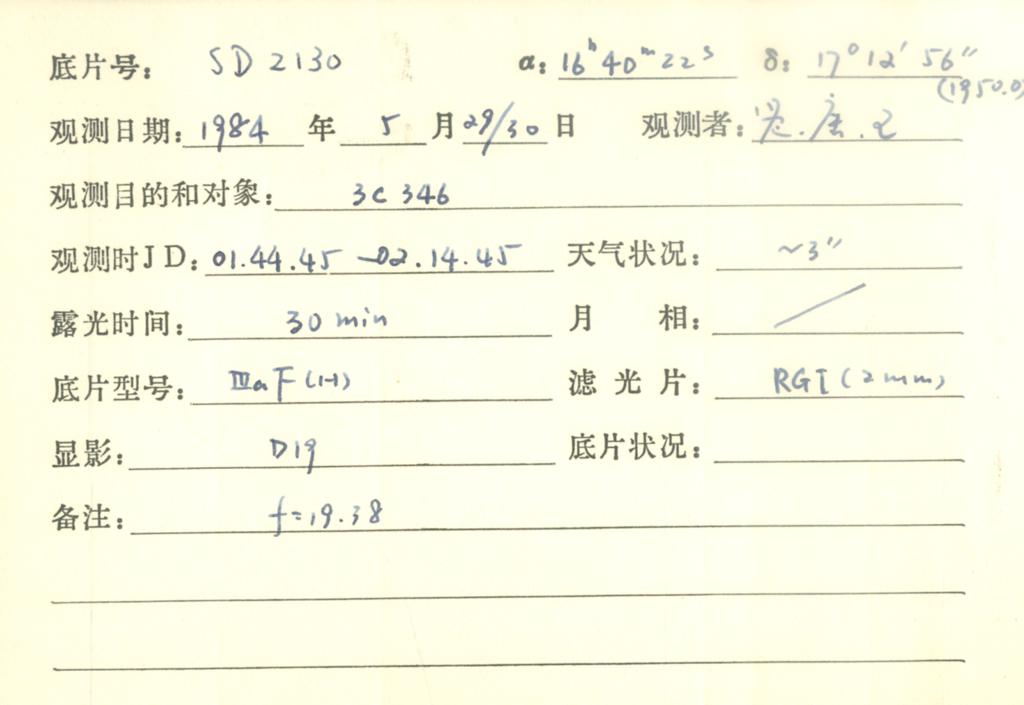 底片号: SD 2130 α: 16ʰ 40ᵐ 22ˢ δ: 17° 12′ 56″
(1950.0)
观测日期: 1984 年 5 月 29/30 日 观测者:
观测目的和对象: 3C 346
观测时JD: 01.44.45 — 02.14.45 天气状况: ~3″
露光时间: 30 min 月 相: /
底片型号: ⅢaF(H) 滤光片: RG1 (2mm)
显影: D19 底片状况:
备注: f=19.38